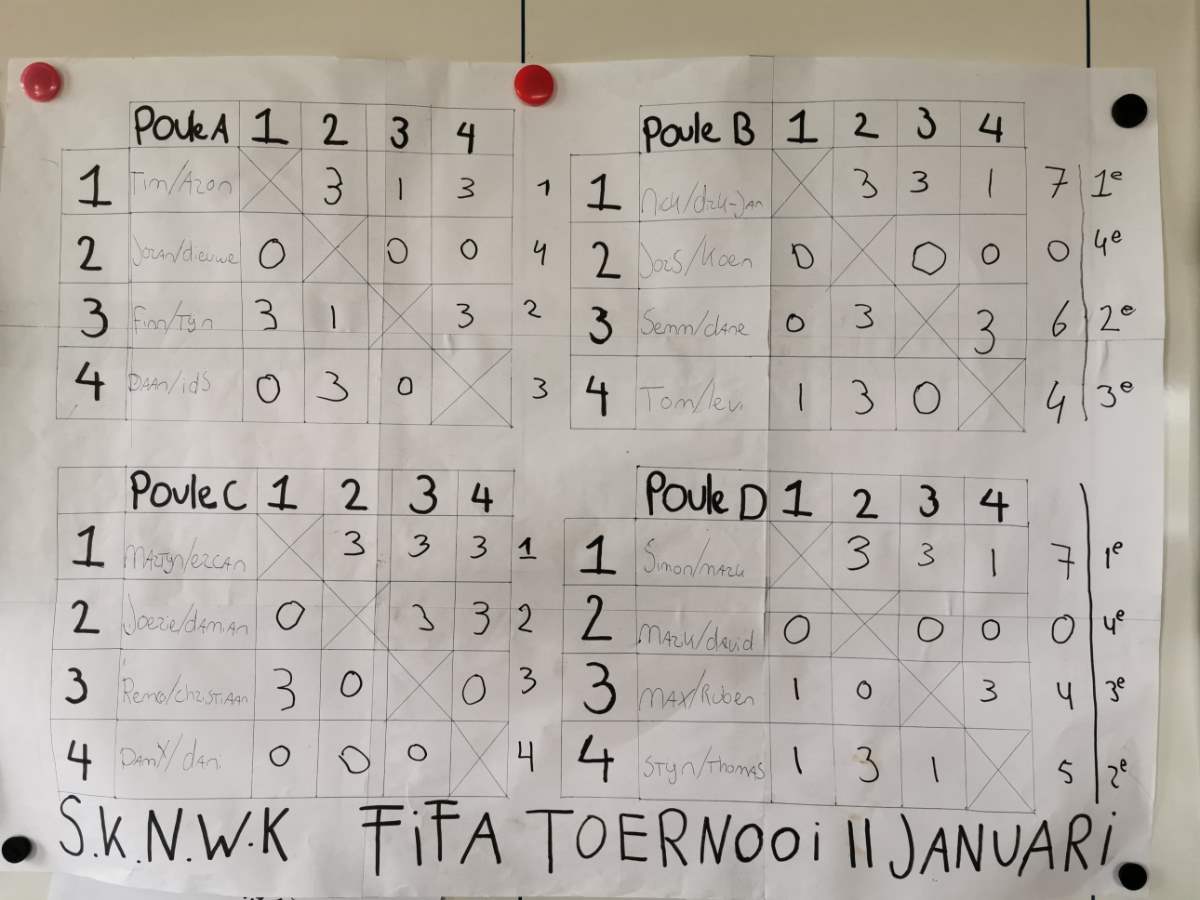 Poule A 1 2 3 4
1 Tim/Azon 3 1 3 1
2 Joran/dieuwe 0 0 0 4
3 Finn/Tyn 3 1 3 2
4 DAAn/idS 0 3 0 3
Poule B 1 2 3 4
1 Nick/dirk-Jan 3 3 1 7 1e
2 JorS/Koen 0 0 0 0 4e
3 Semm/dAne 0 3 3 6 2e
4 Tom/levi 1 3 0 4 3e
Poule C 1 2 3 4
1 MArtyn/ercAn 3 3 3 1
2 Joerie/dAmiAn 0 3 3 2
3 Remo/chriSTiAAn 3 0 0 3
4 DAnY/dAni 0 0 0 4
Poule D 1 2 3 4
1 Simon/mArk 3 3 1 7 1e
2 MArk/dAvid 0 0 0 0 4e
3 MAX/Ruben 1 0 3 4 3e
4 STyn/ThomAS 1 3 1 5 2e
S.K.N.W.K FiFA TOERNOOi 11 JANUARi